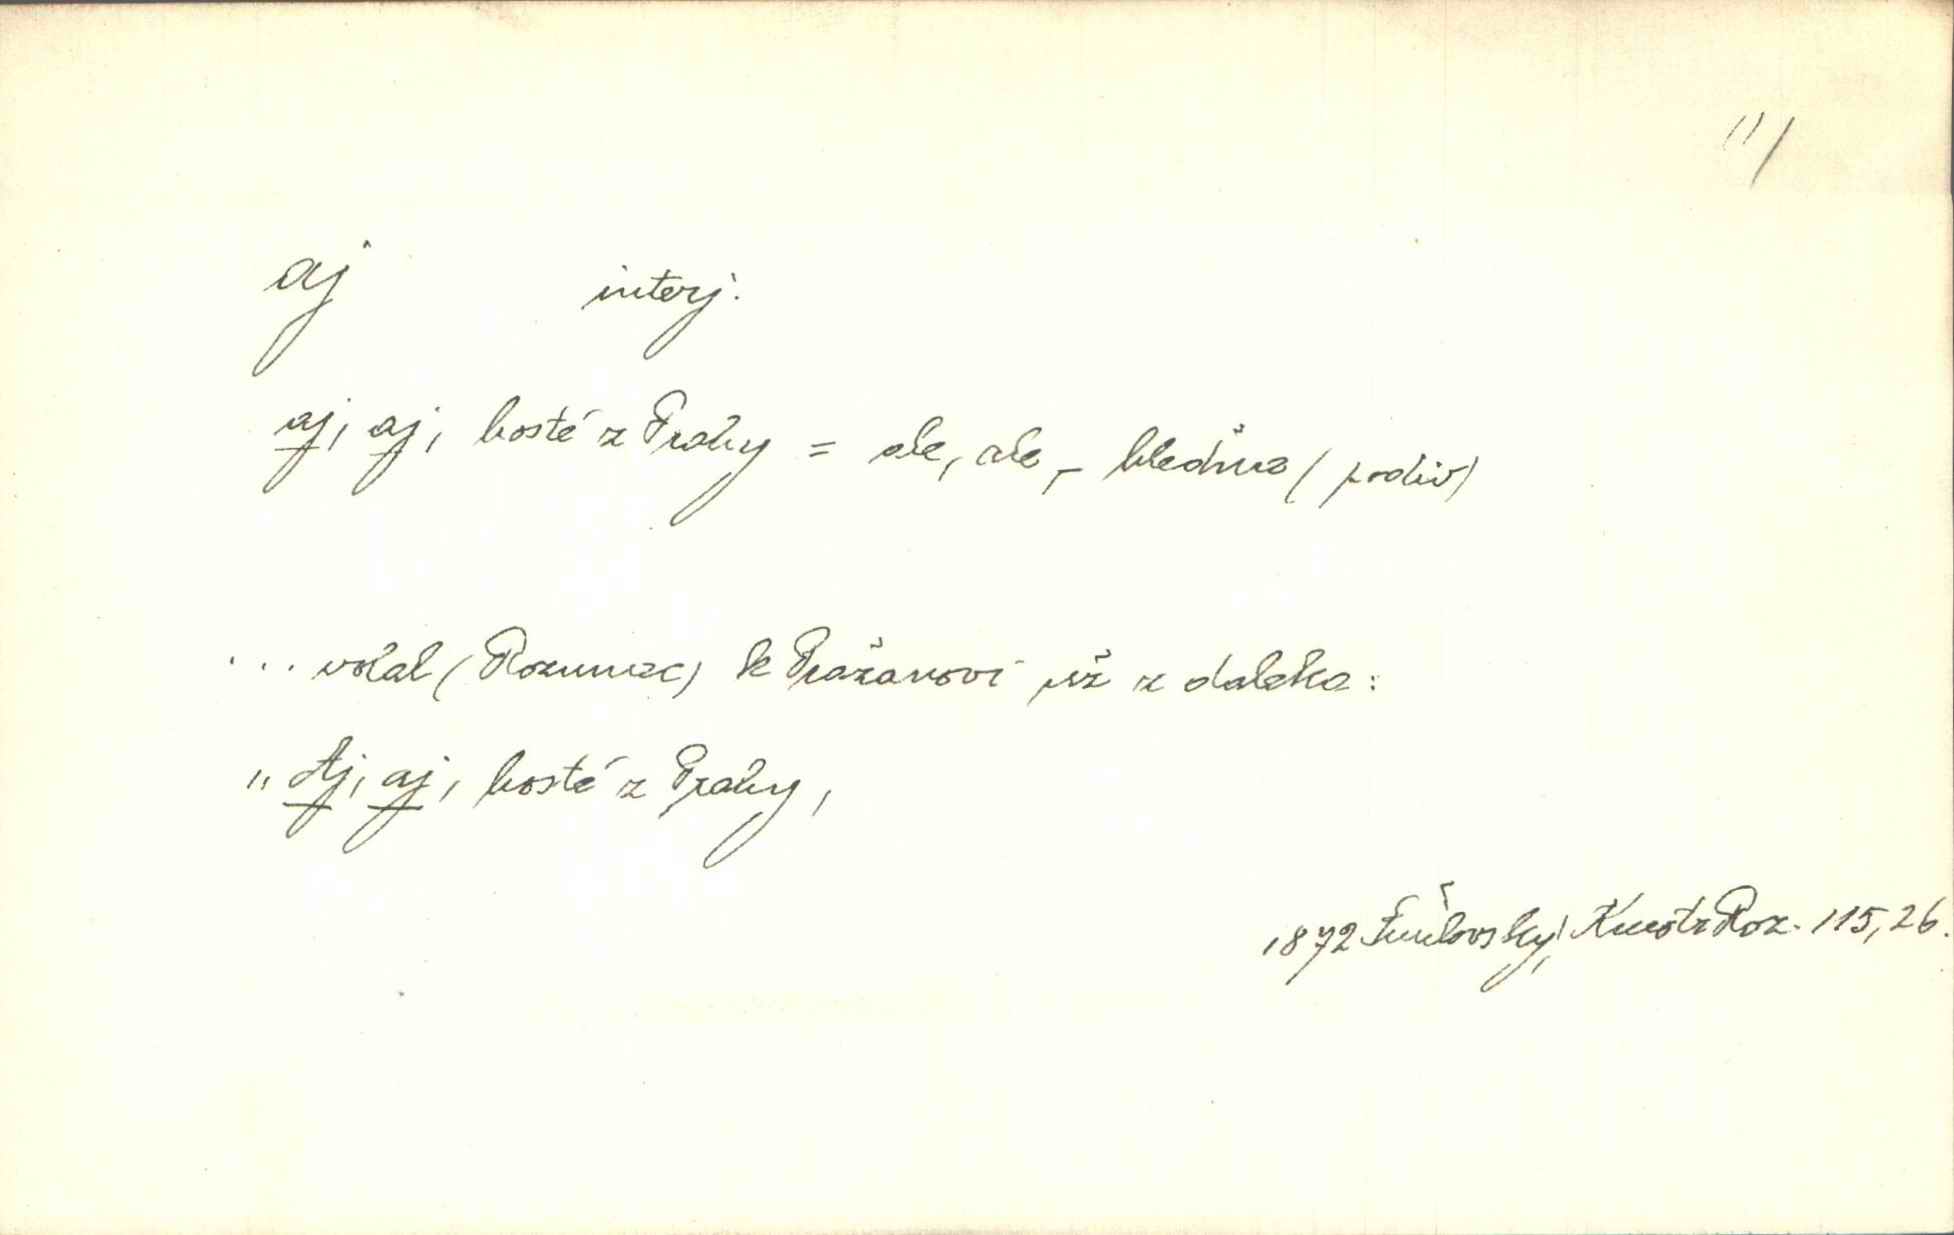 "/
aj interj.
aj, aj, hosté z Prahy = ale, ale, – hleďme (podiv)
... volal (Rozumec) k Pražanovi už z daleka:
„Aj, aj, hosté z Prahy,
1872 Šmilovský, KmotrRoz. 115,26.